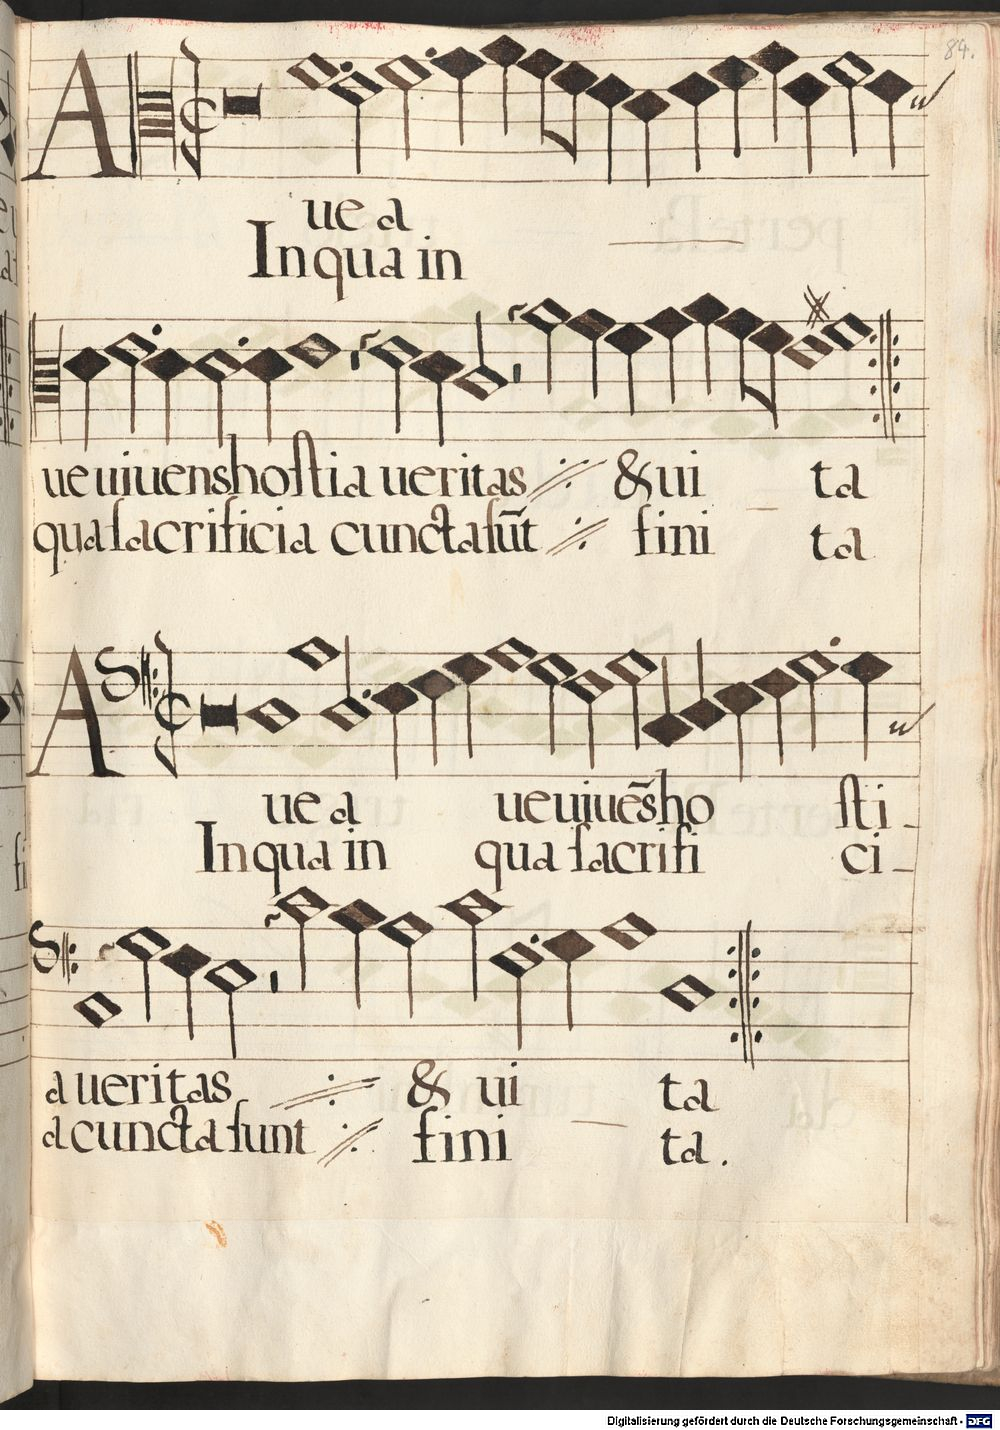 84.
A
ue a
In qua in
ue uiuens hostia ueritas & ui ta
qua sacrificia cuncta sūt fini ta
A
ue a ue uiuēs ho sti -
In qua in qua sacrifi ci -
a ueritas & ui ta
a cuncta sunt fini ta .
Digitalisierung gefördert durch die Deutsche Forschungsgemeinschaft - DFG